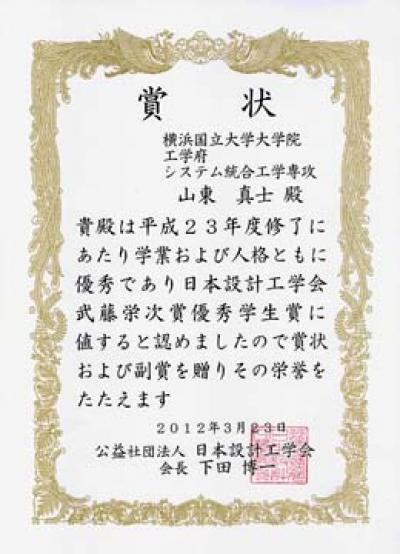 賞状
横浜国立大学大学院
工学府
システム統合工学専攻
山東 真士 殿
貴殿は平成２３年度修了に
あたり学業および人格ともに
優秀であり日本設計工学会
武藤栄次賞優秀学生賞に
値すると認めましたので賞状
および副賞を贈りその栄誉を
たたえます
２０１２年３月２３日
公益社団法人 日本設計工学会
会長 下田 博一